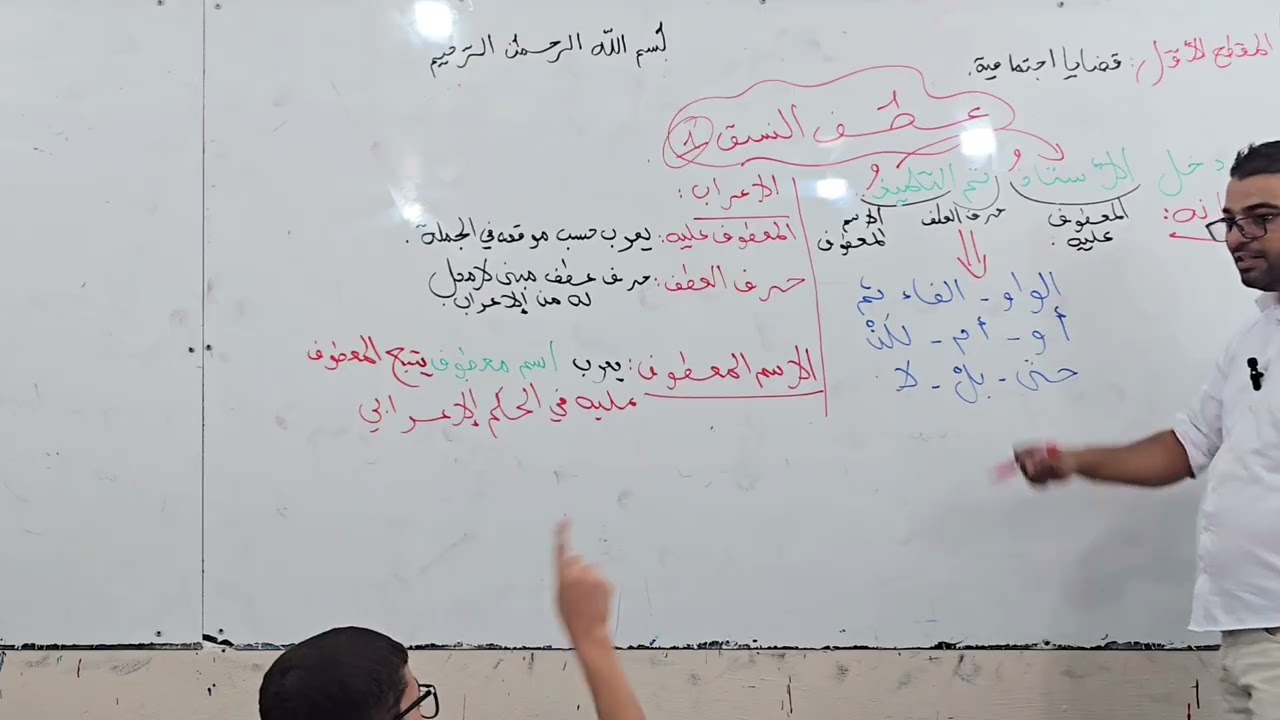 بسم الله الرحمن الرحيم
المقطع الأول: قضايا اجتماعية.
عطف النسق 1
دخل الأستاذُ ثم التلميذُ
المعطوف عليه.
حرف العطف
الاسم المعطوف
الواو - الفاء ثم
أو - أم - لكنْ
حتى - بلْ - لا
الإعراب:
المعطوف عليه: يعرب حسب موقعه في الجملة.
حرف العطف: حرف عطف مبني لا محل
له من الإعراب.
الاسم المعطوف: يعرب اسم معطوف يتبع المعطوف
عليه في الحكم الإعرابي